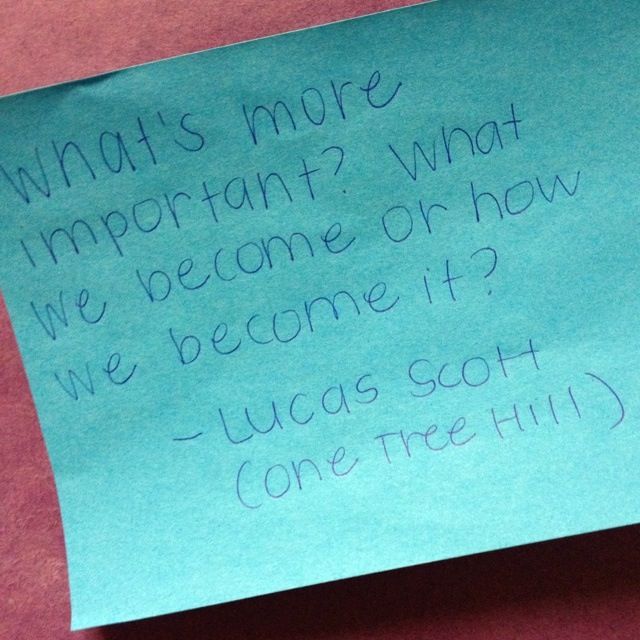 What's more
important? What
we become or how
we become it?
- Lucas Scott
(One Tree Hill)